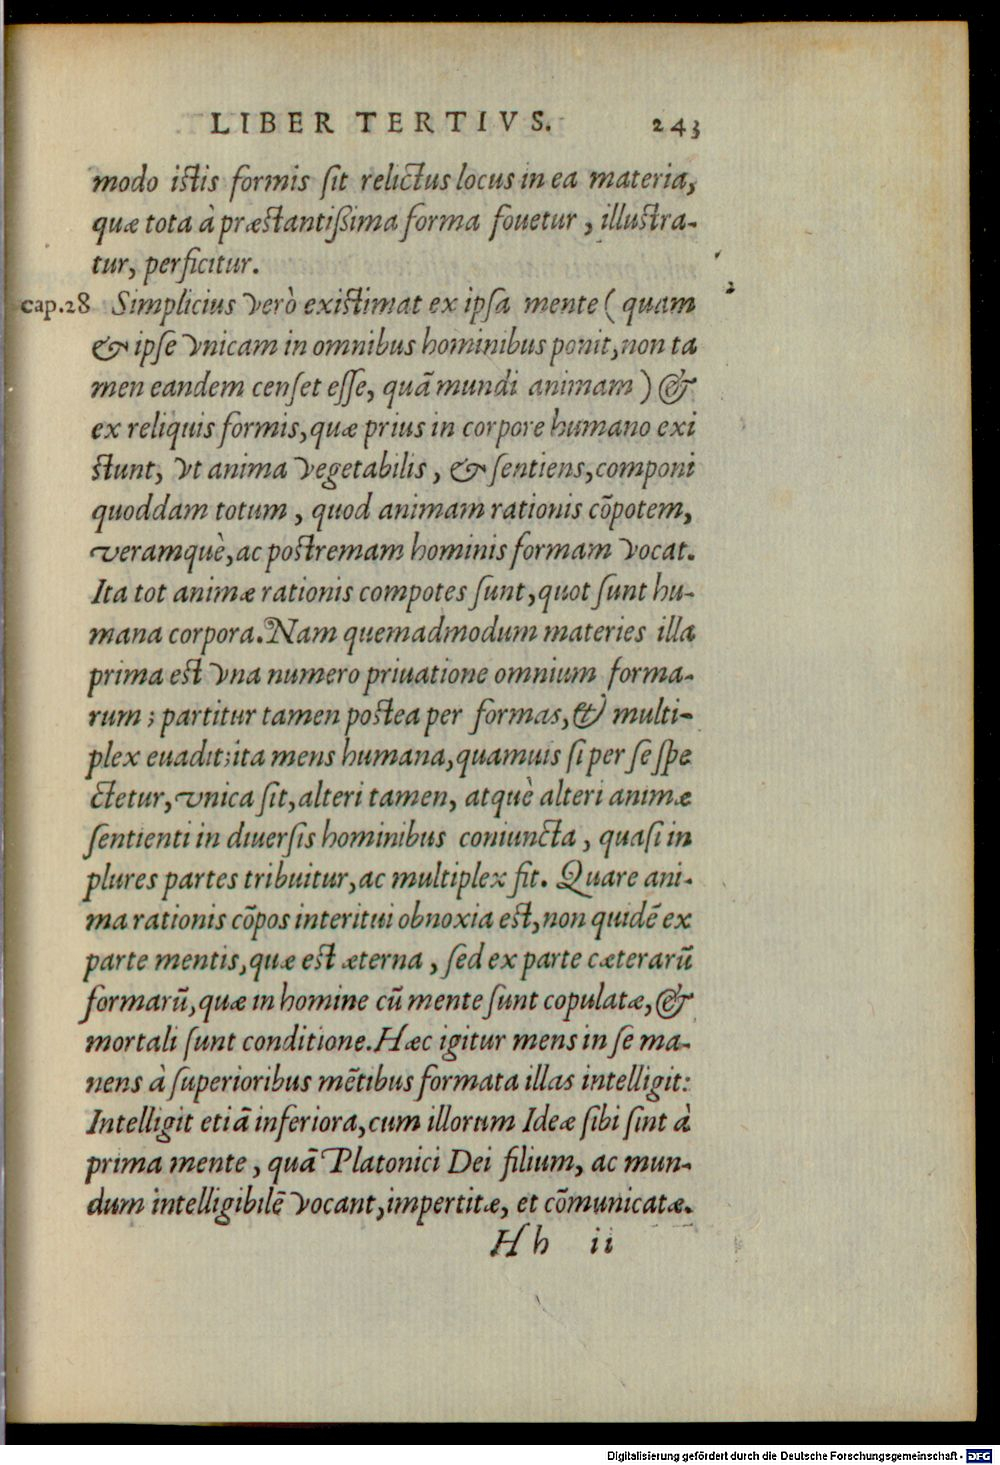 LIBER TERTIVS. 243
modo istis formis sit relictus locus in ea materia,
quæ tota à præstantißima forma fouetur, illustra-
tur, perficitur.
cap.28 Simplicius verò existimat ex ipsa mente (quam
& ipse vnicam in omnibus hominibus ponit, non ta
men eandem censet esse, quã mundi animam) &
ex reliquis formis, quæ prius in corpore humano exi
stunt, vt anima vegetabilis, & sentiens, componi
quoddam totum, quod animam rationis cõpotem,
veramquè, ac postremam hominis formam vocat.
Ita tot animæ rationis compotes sunt, quot sunt hu-
mana corpora. Nam quemadmodum materies illa
prima est vna numero priuatione omnium forma-
rum; partitur tamen postea per formas, & multi-
plex euadit; ita mens humana, quamuis si per se spe
ctetur, vnica sit, alteri tamen, atquè alteri animæ
sentienti in diuersis hominibus coniuncta, quasi in
plures partes tribuitur, ac multiplex fit. Quare ani-
ma rationis cõpos interitui obnoxia est, non quidẽ ex
parte mentis, quæ est æterna, sed ex parte cæterarũ
formarũ, quæ in homine cũ mente sunt copulatæ, &
mortali sunt conditione. Hæc igitur mens in se ma-
nens à superioribus mẽtibus formata illas intelligit:
Intelligit etiã inferiora, cum illorum Ideæ sibi sint à
prima mente, quã Platonici Dei filium, ac mun-
dum intelligibilẽ vocant, impertitæ, et cõmunicatæ.
Hh ii
Digitalisierung gefördert durch die Deutsche Forschungsgemeinschaft - DFG